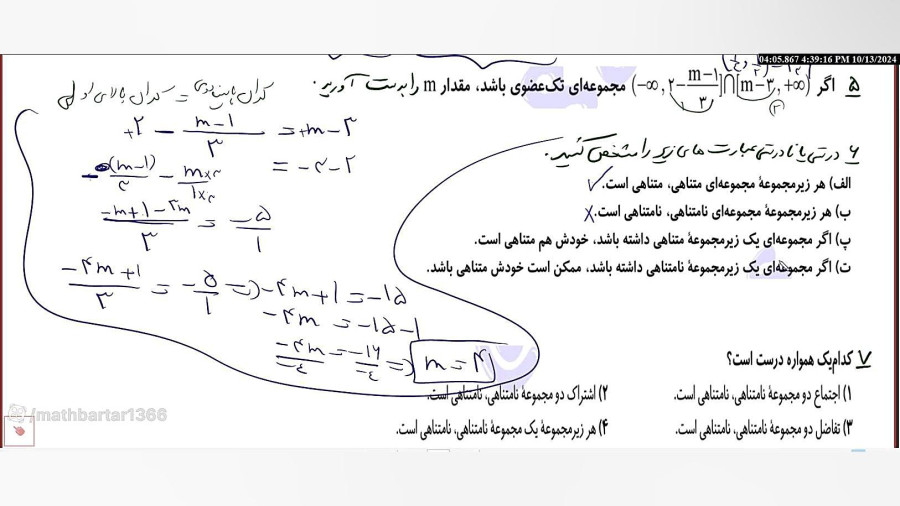 04:05.867 4:39:16 PM 10/13/2024
۵ اگر (-∞, ۲-(m-1)/۳] ∩ [m-۳, +∞) مجموعه‌ای تک‌عضوی باشد، مقدار m را بدست آورید.
+۲ - (m-1)/۳ = +m-۳
= -۳-۲
-(m-1)/۳ - m×۳/1×۳
(-m+1-۳m)/۳ = -۵/1
(-۴m+1)/۳ = -۵/1 => -۴m+1 = -1۵
-۴m = -1۵-1
-۴m/-۴ = -1۶/-۴ => m=۴
۶ درستی یا نادرستی عبارت های زیر را مشخص کنید.
الف) هر زیرمجموعهٔ مجموعه‌ای متناهی، متناهی است. ✓
ب) هر زیرمجموعهٔ مجموعه‌ای نامتناهی، نامتناهی است. x
پ) اگر مجموعه‌ای یک زیرمجموعهٔ متناهی داشته باشد، خودش هم متناهی است.
ت) اگر مجموعه‌ای یک زیرمجموعهٔ نامتناهی داشته باشد، ممکن است خودش متناهی باشد.
۷ کدام‌یک همواره درست است؟
۱) اجتماع دو مجموعهٔ نامتناهی، نامتناهی است.
۲) اشتراک دو مجموعهٔ نامتناهی، نامتناهی است.
۳) تفاضل دو مجموعهٔ نامتناهی، نامتناهی است.
۴) هر زیرمجموعهٔ یک مجموعهٔ نامتناهی، نامتناهی است.
/mathbartar1366